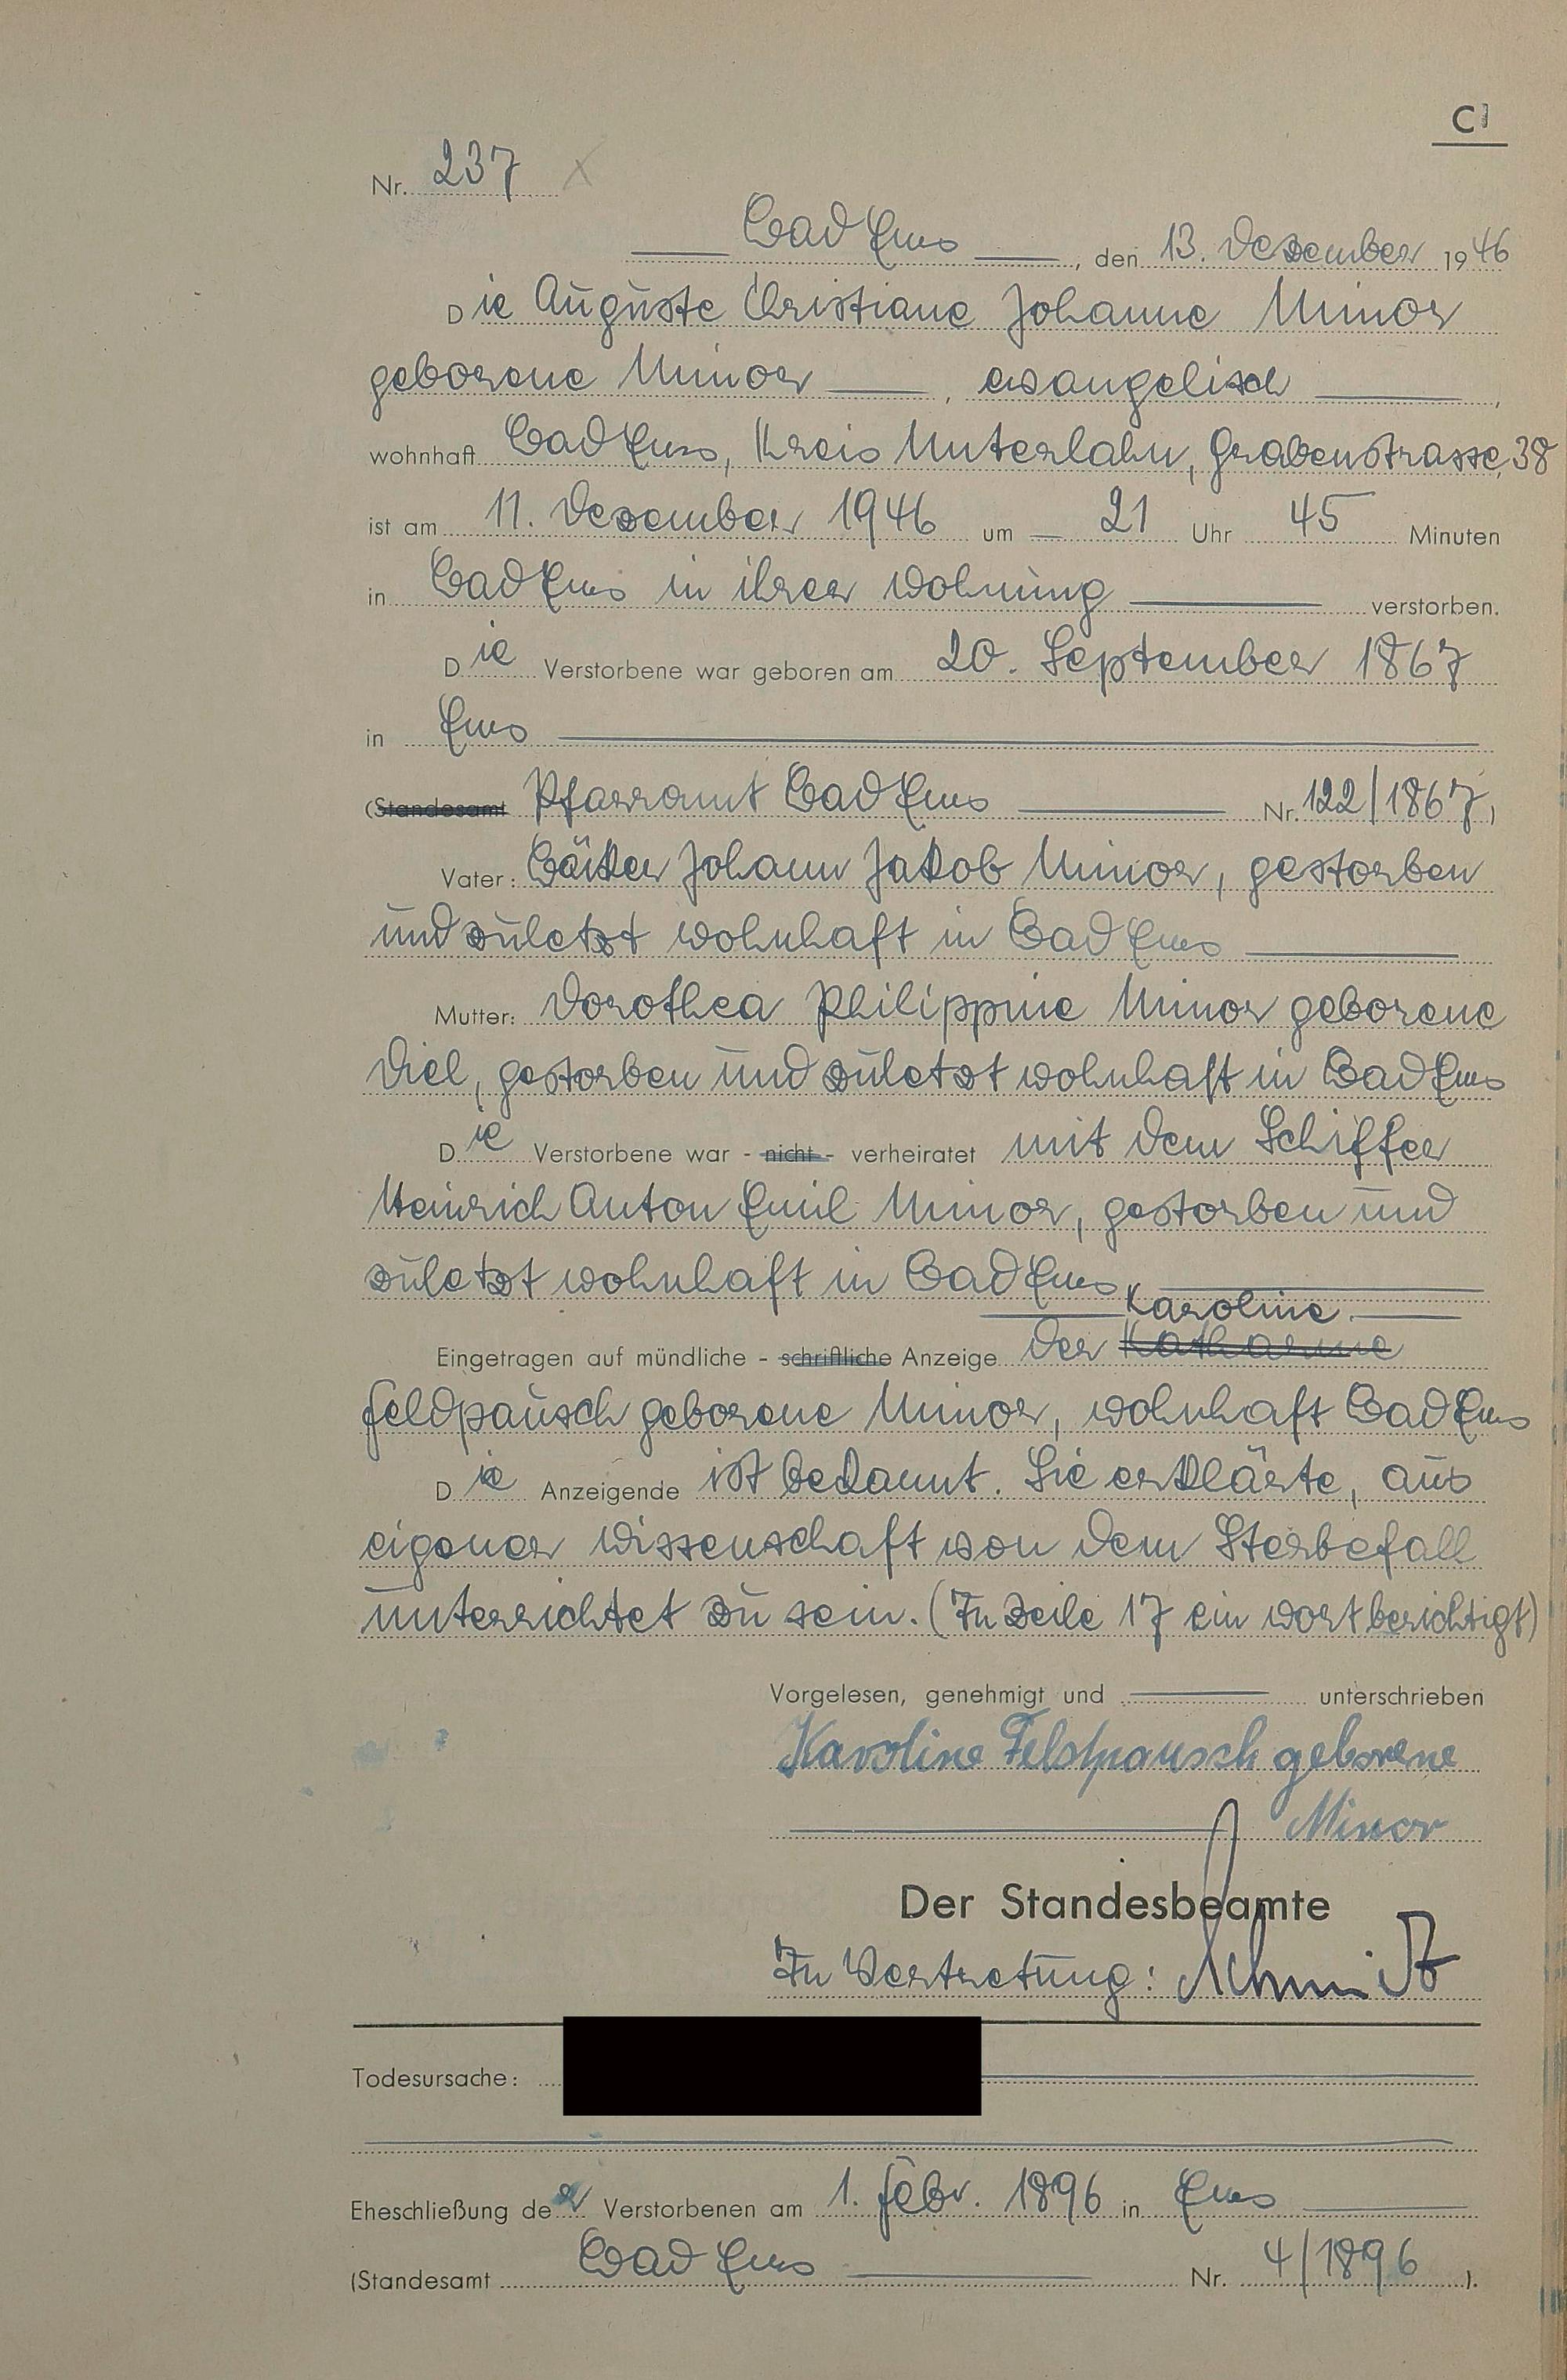 C
Nr. 237
Bad Ems, den 13. Dezember 1946
Die Auguste Christiane Johanne Minor
geborene Minor, evangelisch,
wohnhaft Bad Ems, Kreis Unterlahn, Grabenstrasse, 38
ist am 11. Dezember 1946 um 21 Uhr 45 Minuten
in Bad Ems in ihrer Wohnung verstorben.
Die Verstorbene war geboren am 20. September 1867
in Ems
(Standesamt Pfarramt Bad Ems Nr. 122/1867)
Vater: Bäcker Johann Jakob Minor, gestorben
und zuletzt wohnhaft in Bad Ems
Mutter: Dorothea Philippine Minor geborene
Diel, gestorben und zuletzt wohnhaft in Bad Ems
Die Verstorbene war - nicht - verheiratet mit dem Schiffer
Heinrich Anton Emil Minor, gestorben und
zuletzt wohnhaft in Bad Ems
Karoline
Eingetragen auf mündliche - schriftliche Anzeige der Katharine
Feldpausch geborene Minor, wohnhaft Bad Ems
Die Anzeigende ist bekannt. Sie erklärte, aus
eigener Wissenschaft von dem Sterbefall
unterrichtet zu sein. (In Zeile 17 ein Wort berichtigt)
Vorgelesen, genehmigt und unterschrieben
Karoline Feldpausch geborene
Minor
Der Standesbeamte
In Vertretung: Schmidt
Todesursache:
Eheschließung der Verstorbenen am 1. Febr. 1896 in Ems
(Standesamt Bad Ems Nr. 4/1896).